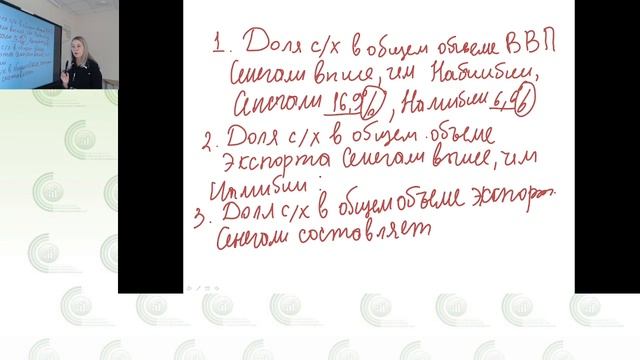 1. Доля с/х в общем объеме ВВП
Сенегали выше, чем Намибии,
Сенегали 16,9%, Намибии 6,9%
2. Доля с/х в общем объеме
экспорта Сенегали выше, чем
Намибии :
3. Доля с/х в общем объеме экспорт.
Сенегали составляет